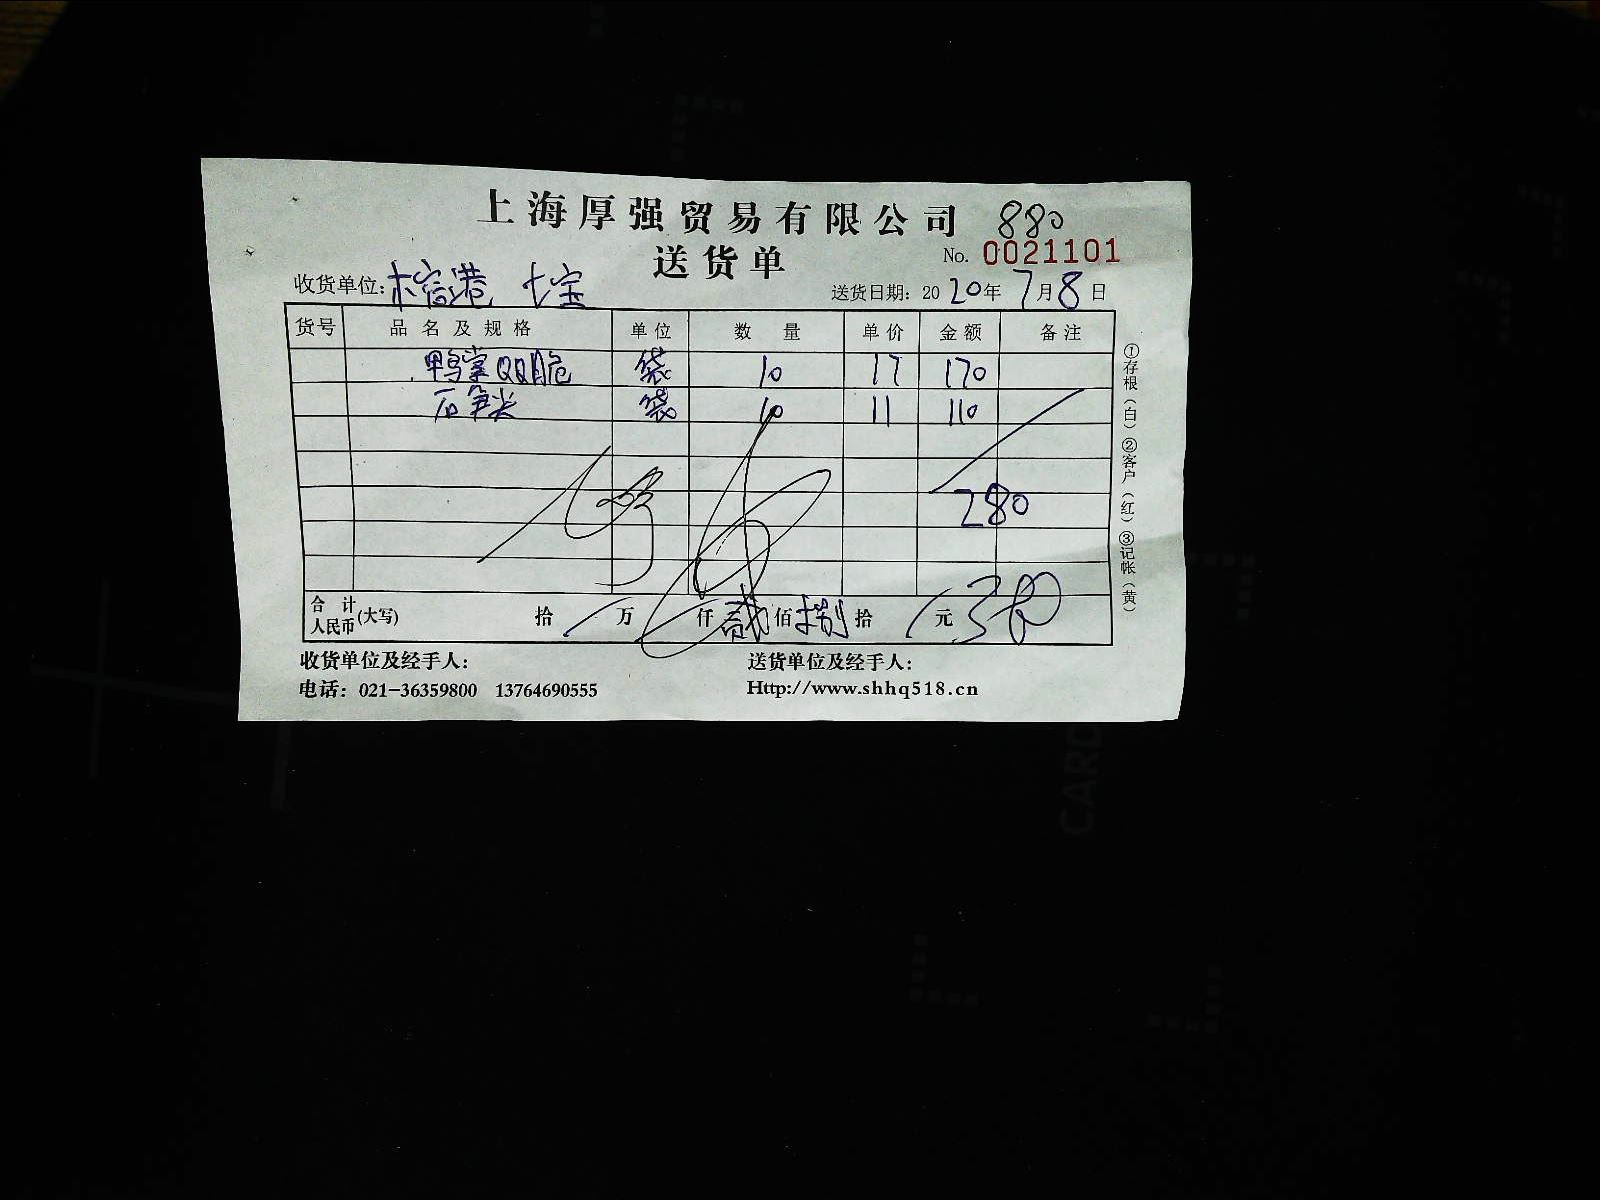 上海厚强贸易有限公司 880
送货单 No. 0021101
收货单位: 七宝 送货日期: 2020年7月8日
货号 品名及规格 单位 数量 单价 金额 备注
鸭掌QQ脆 袋 10 17 170
石笋尖 袋 10 11 110
280
合计人民币(大写) 拾 万 仟 贰佰捌拾 元
收货单位及经手人: 送货单位及经手人:
电话: 021-36359800 13764690555 Http://www.shhq518.cn
①存根(白)②客户(红)③记帐(黄)